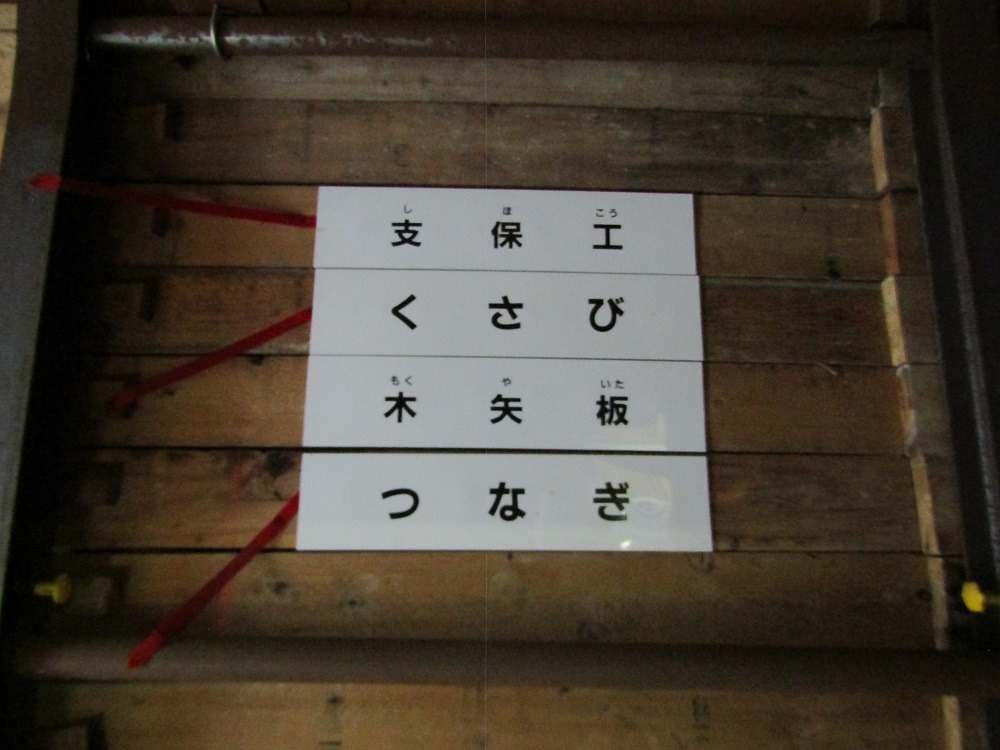 し ほ こう
支保工
くさび
もく や いた
木矢板
つなぎ